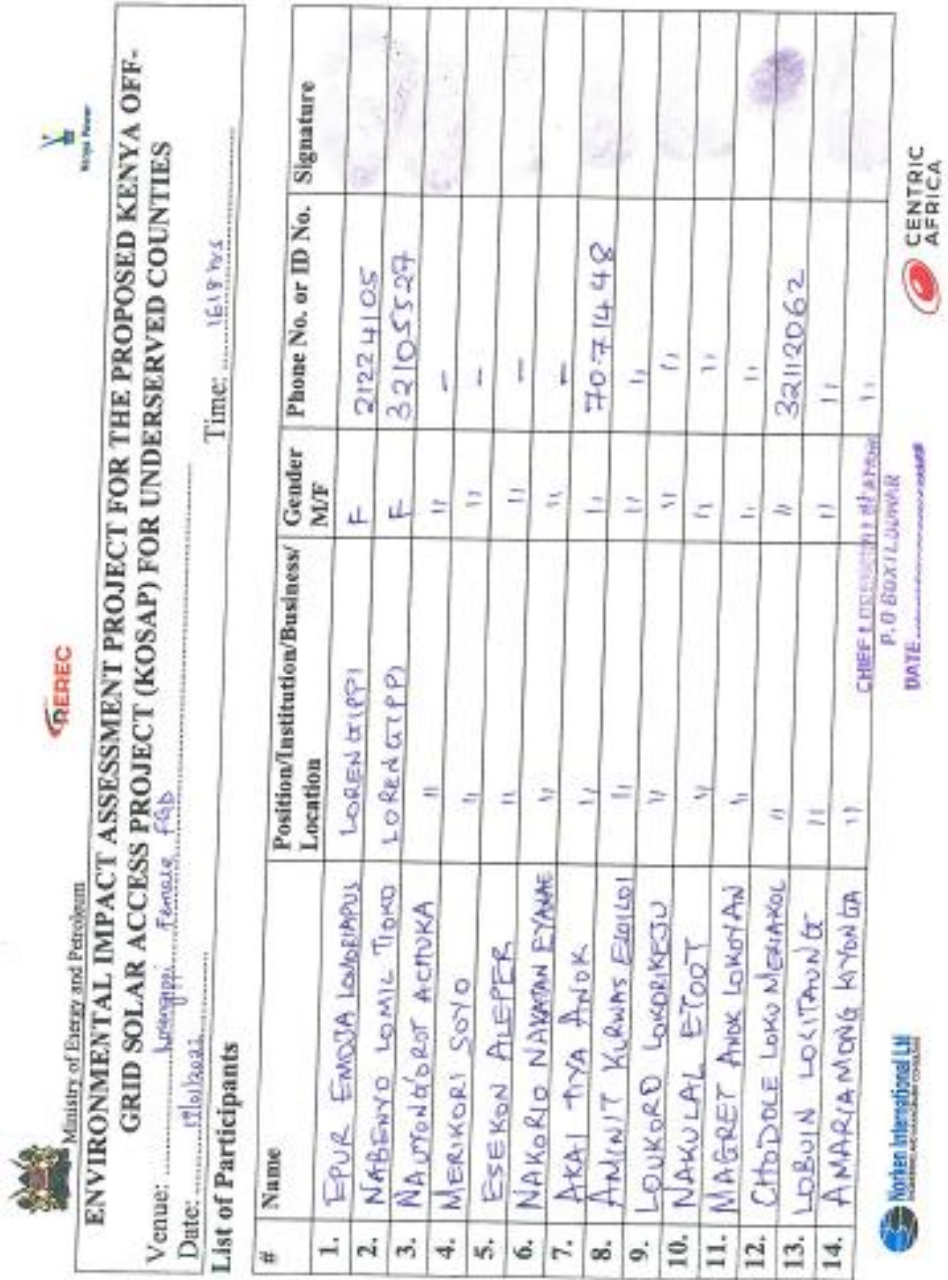 Ministry of Energy and Petroleum
REREC
Kenya Power
ENVIRONMENTAL IMPACT ASSESSMENT PROJECT FOR THE PROPOSED KENYA OFF-
GRID SOLAR ACCESS PROJECT (KOSAP) FOR UNDERSERVED COUNTIES
Venue: Lorengippi Female FGD
Date: Time: 1618 hrs
List of Participants
# Name Position/Institution/Business/Location Gender M/F Phone No. or ID No. Signature
1. EPUR EMOJA LOMORIAPUS LORENGIPPI F 21224105
2. NABENYO LOMIL TIOKO LORENGIPPI F 32105527
3. NAUTONGOROT ACHUKA " " -
4. MERIKORI SOYO " " -
5. ESEKON ALEPER " " -
6. NAKORIO NAKATAN EYANAE " " -
7. AKAI TIYA ANOK " " 70714448
8. AMINIT KURWAS ELOILOI " " "
9. LOUKORD LOKORIKEJU " " "
10. NAKULAL ETOOT " " "
11. MAGRET ANOK LOKOYAN " " "
12. CHODOLE LOKU MERIAKOL " " 32112062
13. LOBUIN LOKITAUNG " " "
14. AMARIAMONG KIYONGA " "
CHIEF
P.O BOX 1 LODWAR
DATE
Norken International Ltd
CENTRIC
AFRICA